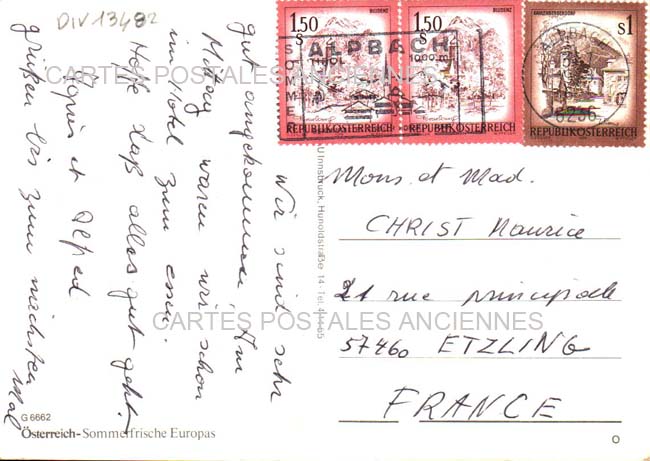 DIV 13482
Wir sind sehr
gut angekommen Am
Mittag waren wir schon
im Hotel zum essen.
Hoffe daß alles gut geht.
Agnès et Alfred
grüßen bis zum nächsten
Mal
G 6662
Österreich-Sommerfrische Europas
Innsbruck, Hunoldstraße 14 - Tel.
1.50 S
BLUDENZ
REPUBLIK ÖSTERREICH
1.50 S
BLUDENZ
REPUBLIK ÖSTERREICH
S1
REPUBLIK ÖSTERREICH
ALPBACH
TIROL 1000 m
SOMMER
ALPBACH
6236
Mons. et Mad.
CHRIST Maurice
21 rue principale
57460 ETZLING
FRANCE
CARTES POSTALES ANCIENNES
CARTES POSTALES ANCIENNES